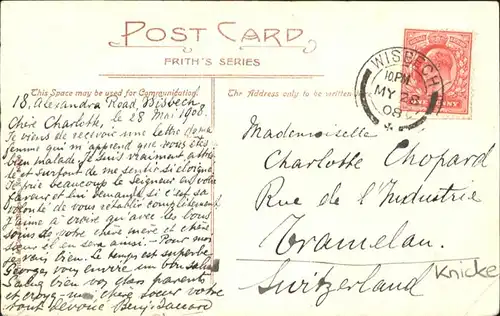 POST CARD
FRITH'S SERIES
This Space may be used for Communication.
The Address only to be written
WISBECH
10 PM
MY 28
08
18, Alexandra Road, Wisbech
le 28 Mai 1908.
Chère Charlotte,
Je viens de recevoir une lettre de ma
femme qui m'apprend que vous êtes
bien malade. Je suis vraiment attristé
et surtout de me sentir si éloigné.
Je prie beaucoup le Seigneur en votre
faveur et lui demande si c'est sa
volonté de vous rétablir complètement
J'aime à croire qu'avec les bons
soins de votre chère mère et chère
sœur il en sera ainsi - Pour moi
je vais bien. Le temps est superbe
Georges vous envoie un bon salut
Saluez bien vos chers parents
et croyez-moi chère sœur votre
tout dévoué Benj.
Mademoiselle
Charlotte Chopard
Rue de l'Industrie
Tramelan.
Switzerland
Knicke